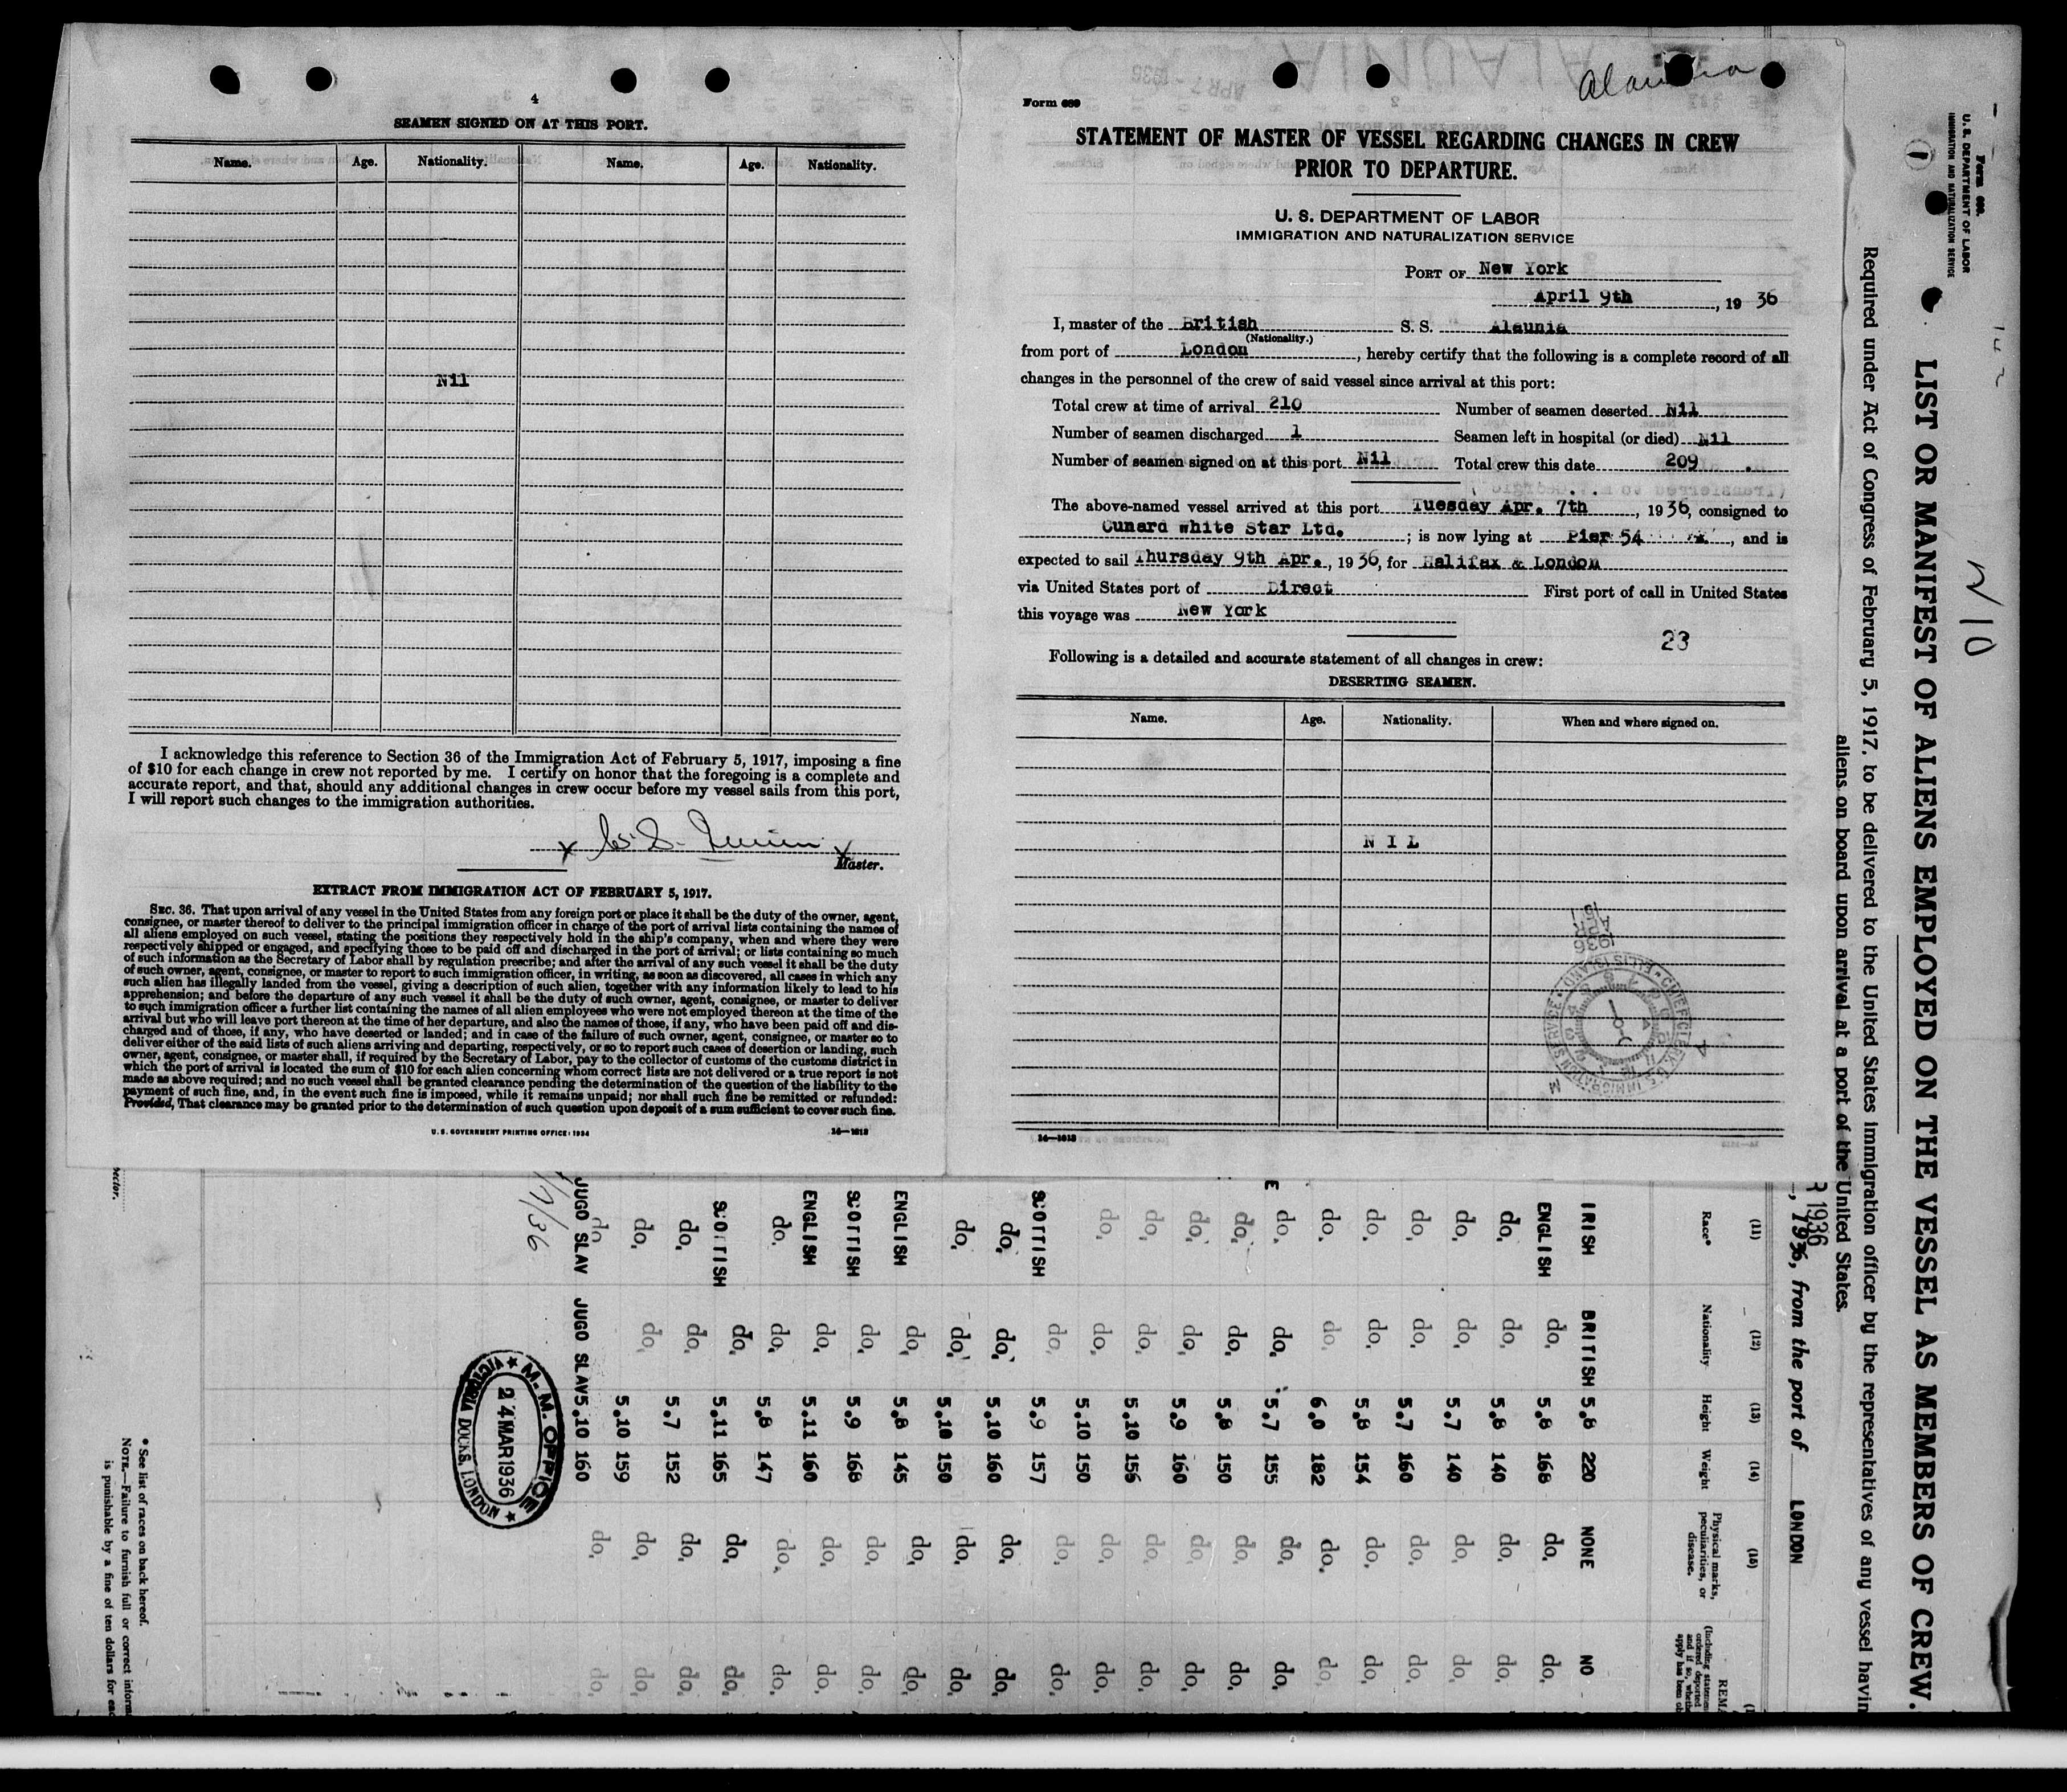 4
SEAMEN SIGNED ON AT THIS PORT.
Name. Age. Nationality. Name. Age. Nationality.
Nil
I acknowledge this reference to Section 36 of the Immigration Act of February 5, 1917, imposing a fine
of $10 for each change in crew not reported by me. I certify on honor that the foregoing is a complete and
accurate report, and that, should any additional changes in crew occur before my vessel sails from this port,
I will report such changes to the immigration authorities.
Master.
EXTRACT FROM IMMIGRATION ACT OF FEBRUARY 5, 1917.
SEC. 36. That upon arrival of any vessel in the United States from any foreign port or place it shall be the duty of the owner, agent,
consignee, or master thereof to deliver to the principal immigration officer in charge of the port of arrival lists containing the names of
all aliens employed on such vessel, stating the positions they respectively hold in the ship's company, when and where they were
respectively shipped or engaged, and specifying those to be paid off and discharged in the port of arrival; or lists containing so much
of such information as the Secretary of Labor shall by regulation prescribe; and after the arrival of any such vessel it shall be the duty
of such owner, agent, consignee, or master to report to such immigration officer, in writing, as soon as discovered, all cases in which any
such alien has illegally landed from the vessel, giving a description of such alien, together with any information likely to lead to his
apprehension; and before the departure of any such vessel it shall be the duty of such owner, agent, consignee, or master to deliver
to such immigration officer a further list containing the names of all alien employees who were not employed thereon at the time of the
arrival but who will leave port thereon at the time of her departure, and also the names of those, if any, who have been paid off and dis-
charged and of those, if any, who have deserted or landed; and in case of the failure of such owner, agent, consignee, or master so to
deliver either of the said lists of such aliens arriving and departing, respectively, or so to report such cases of desertion or landing, such
owner, agent, consignee, or master shall, if required by the Secretary of Labor, pay to the collector of customs of the customs district in
which the port of arrival is located the sum of $10 for each alien concerning whom correct lists are not delivered or a true report is not
made as above required; and no such vessel shall be granted clearance pending the determination of the question of the liability to the
payment of such fine, and, in the event such fine is imposed, while it remains unpaid; nor shall such fine be remitted or refunded:
Provided, That clearance may be granted prior to the determination of such question upon deposit of a sum sufficient to cover such fine.
U. S. GOVERNMENT PRINTING OFFICE: 1934 14—1813
Alaunia
Form 689
STATEMENT OF MASTER OF VESSEL REGARDING CHANGES IN CREW
PRIOR TO DEPARTURE.
U. S. DEPARTMENT OF LABOR
IMMIGRATION AND NATURALIZATION SERVICE
PORT OF New York
April 9th, 1936
I, master of the British S. S. Alaunia
(Nationality.)
from port of London, hereby certify that the following is a complete record of all
changes in the personnel of the crew of said vessel since arrival at this port:
Total crew at time of arrival 210 Number of seamen deserted Nil
Number of seamen discharged 1 Seamen left in hospital (or died) Nil
Number of seamen signed on at this port Nil Total crew this date 209
The above-named vessel arrived at this port Tuesday Apr. 7th, 1936, consigned to
Cunard White Star Ltd.; is now lying at Pier 54, and is
expected to sail Thursday 9th Apr., 1936, for Halifax & London
via United States port of Direct First port of call in United States
this voyage was New York
23
Following is a detailed and accurate statement of all changes in crew:
DESERTING SEAMEN.
Name. Age. Nationality. When and where signed on.
NIL
1936
APR
14—1813
Form 689.
U. S. DEPARTMENT OF LABOR
IMMIGRATION AND NATURALIZATION SERVICE
1
LIST OR MANIFEST OF ALIENS EMPLOYED ON THE VESSEL AS MEMBERS OF CREW.
Required under Act of Congress of February 5, 1917, to be delivered to the United States immigration officer by the representatives of any vessel havin
aliens on board upon arrival at a port of the United States.
R 1936
, 1936, from the port of LONDON
(11) (12) (13) (14) (15)
Race* Nationality Height Weight Physical marks, peculiarities, or disease. REMA
IRISH BRITISH 5.8 220 NONE NO
ENGLISH do, 5.8 168 do, do,
do, do, 5.8 140 do, do,
do, do, 5.7 140 do, do,
do, do, 5.7 160 do, do,
do, do, 5.8 154 do, do,
do, do, 6.0 182 do, do,
do, do, 5.7 155 do, do,
do, do, 5.8 150 do, do,
do, do, 5.9 160 do, do,
do, do, 5.10 156 do, do,
do, do, 5.10 150 do, do,
SCOTTISH do, 5.9 157 do, do,
do, do, 5.10 160 do, do,
do, do, 5.10 150 do, do,
ENGLISH do, 5.8 145 do, do,
SCOTTISH do, 5.9 168 do, do,
ENGLISH do, 5.11 160 do, do,
do. do, 5.8 147 do, do,
SCOTTISH do, 5.11 165 do, do,
do, do, 5.7 152 do, do,
do, do, 5.10 159 do, do,
JUGO SLAV JUGO SLAV 5.10 160 do, do,
M. M. OFFICE
24 MAR 1936
VICTORIA DOCKS, LONDON
* See list of races on back hereof.
NOTE.—Failure to furnish full or correct inform
is punishable by a fine of ten dollars for ea